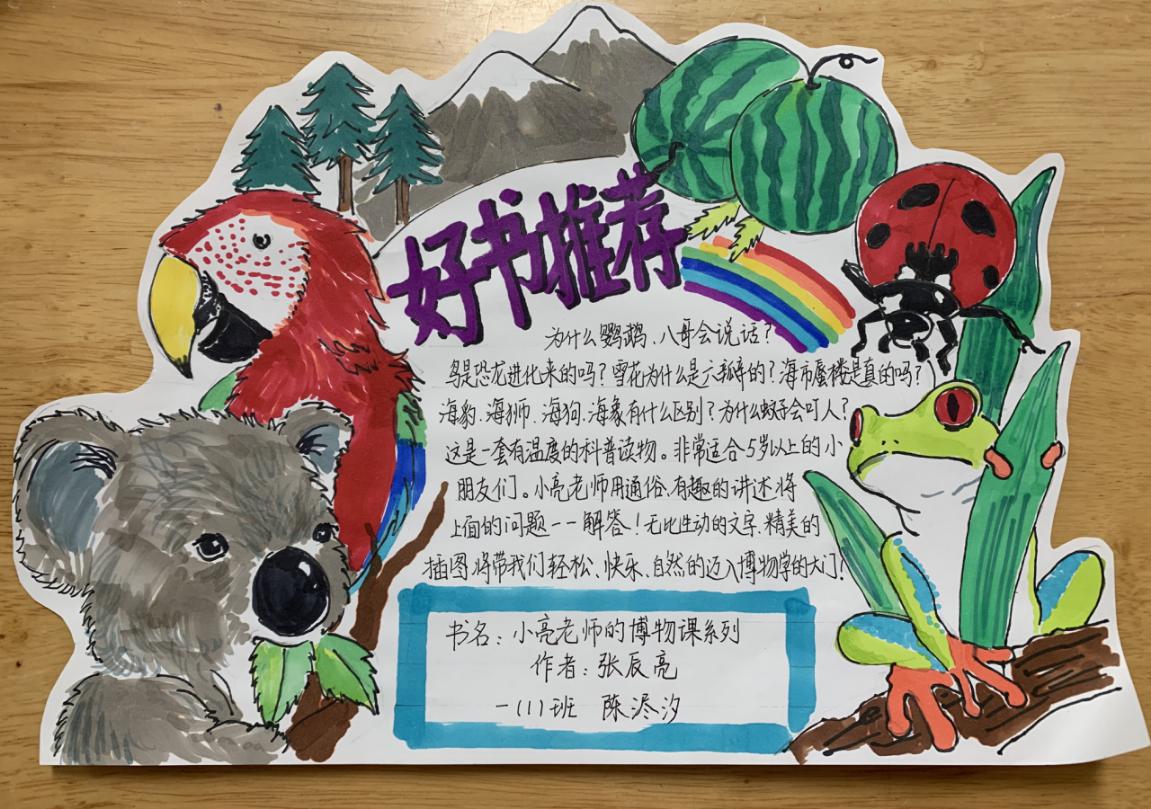 好书推荐
为什么鹦鹉、八哥会说话?
鸟是恐龙进化来的吗?雪花为什么是六瓣的?海市蜃楼是真的吗?
海豹、海狮、海狗、海象有什么区别?为什么蚊子会叮人?
这是一套有温度的科普读物。非常适合5岁以上的小
朋友们。小亮老师用通俗、有趣的讲述,将
上面的问题一一解答!无比生动的文字、精美的
插图,将带我们轻松、快乐、自然的迈入博物学的大门!
书名:小亮老师的博物课系列
作者:张辰亮
一(1)班 陈浕汐